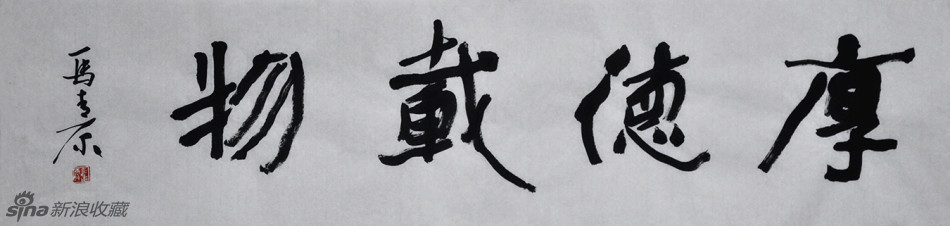 厚德載物
馬青原
sina新浪收藏